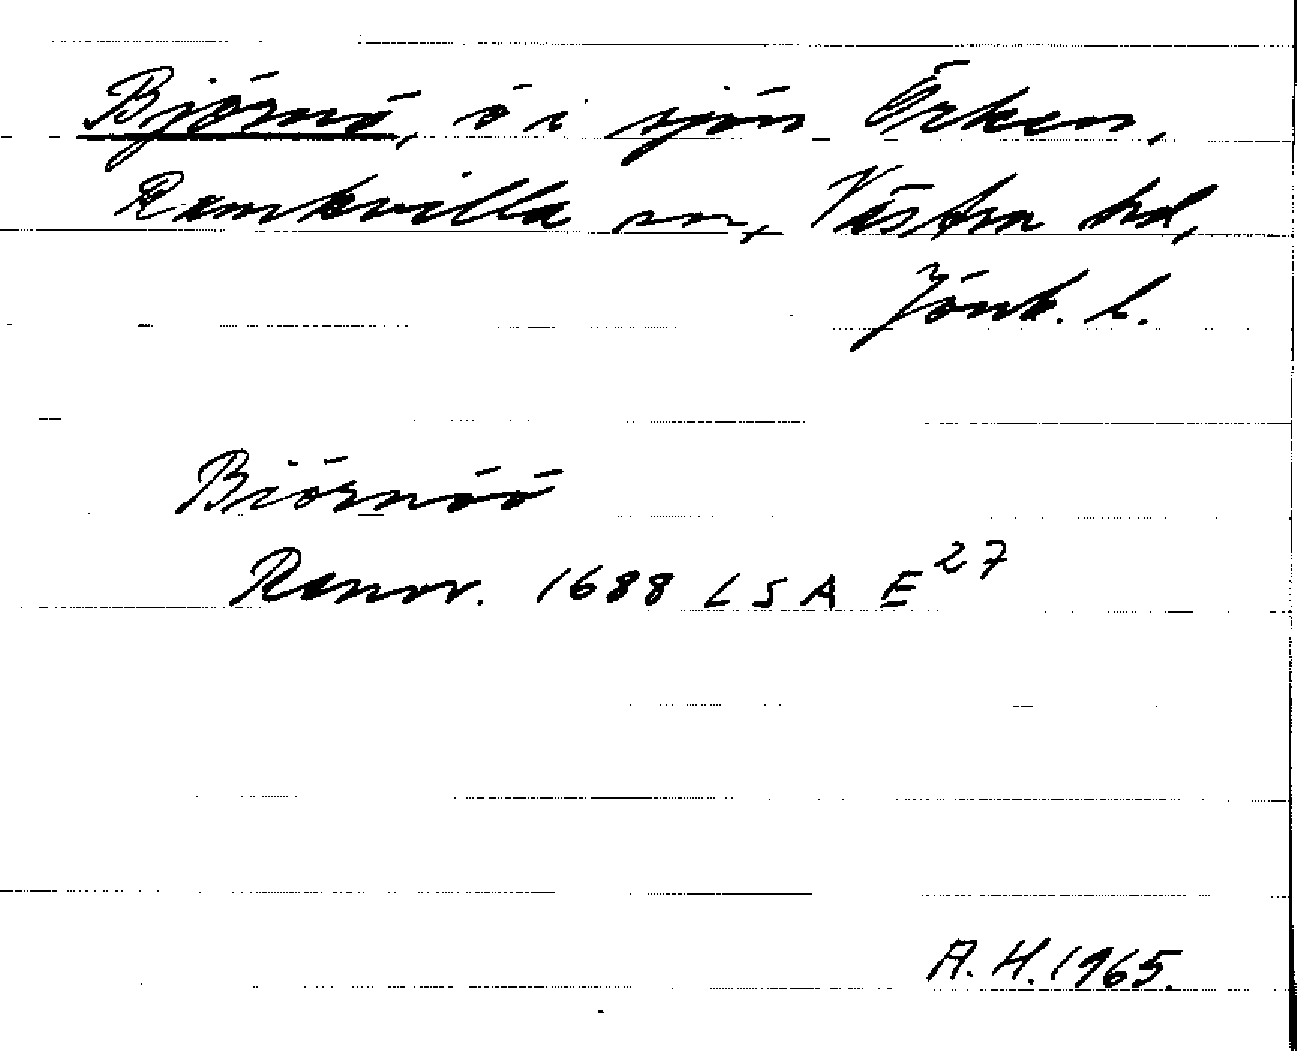 Björnö, ö i sjön Örken,
Ramkvilla sn, Västra hd,
Jönk. l.
Biörnöö
Rannr. 1688 LSA E27
A. H. 1965.